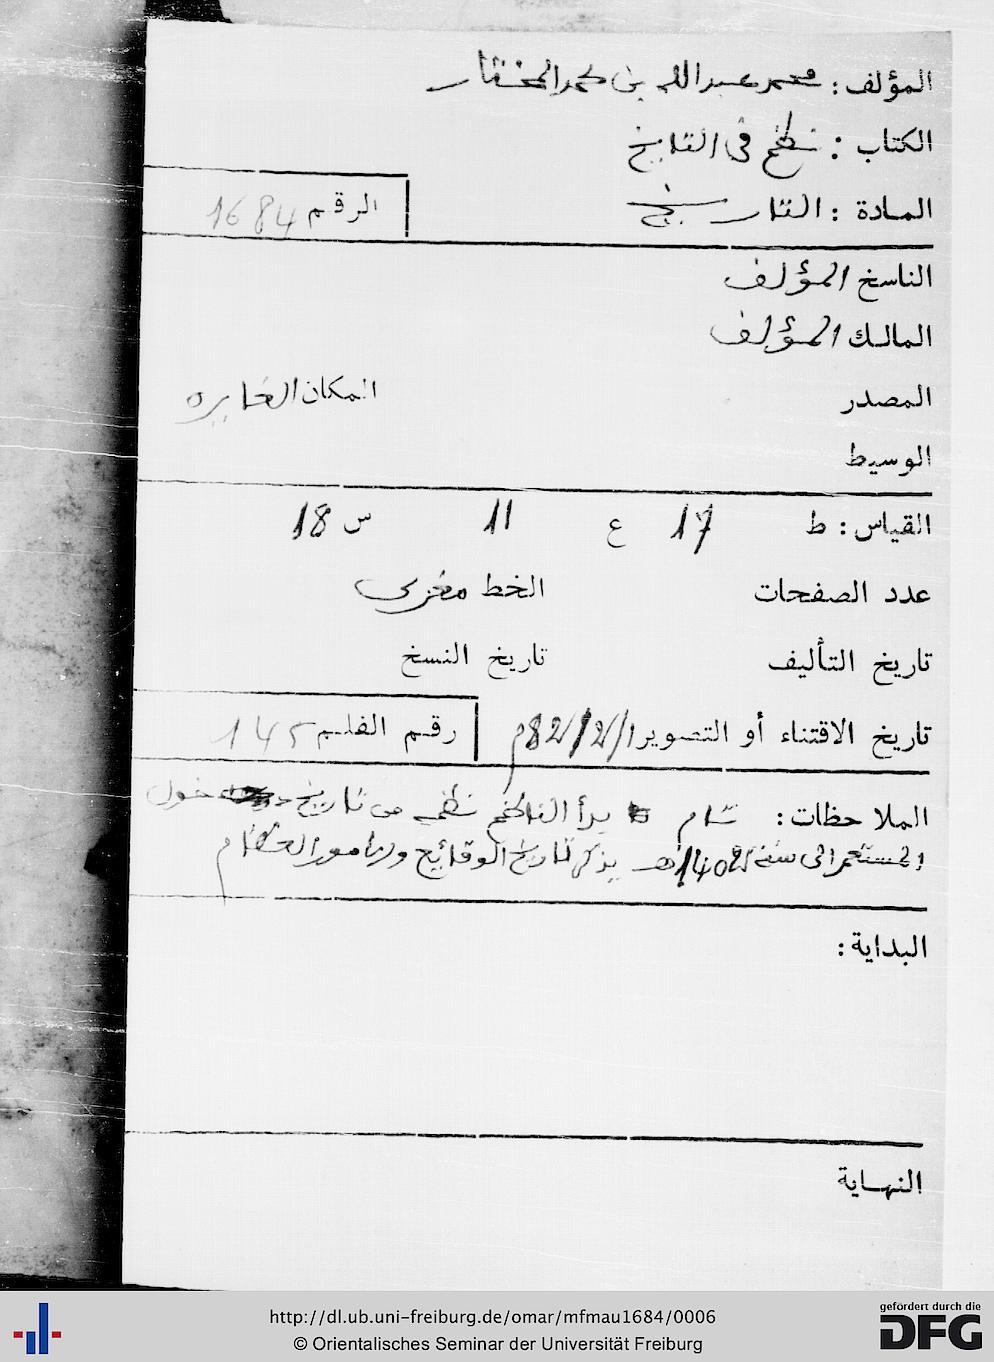 المؤلف: محمد عبد الله بن محمد المختار
الكتاب: نظم في التاريخ
المادة: التاريخ
الرقم 1684
الناسخ المؤلف
المالك المؤلف
المصدر
المكان
الوسيط
القياس: ط 17 ع 11 س 18
عدد الصفحات الخط مغربي
تاريخ التأليف تاريخ النسخ
تاريخ الاقتناء أو التصوير 1/2/82م
رقم الفلم 145
الملاحظات: تام يبدأ الناظم نظمه من تاريخ دخول
المستعمر الى سنة 1402هـ يذكر تاريخ الوقائع والامور العظام
البداية:
النهاية
http://dl.ub.uni-freiburg.de/omar/mfmau1684/0006
© Orientalisches Seminar der Universität Freiburg
gefördert durch die
DFG